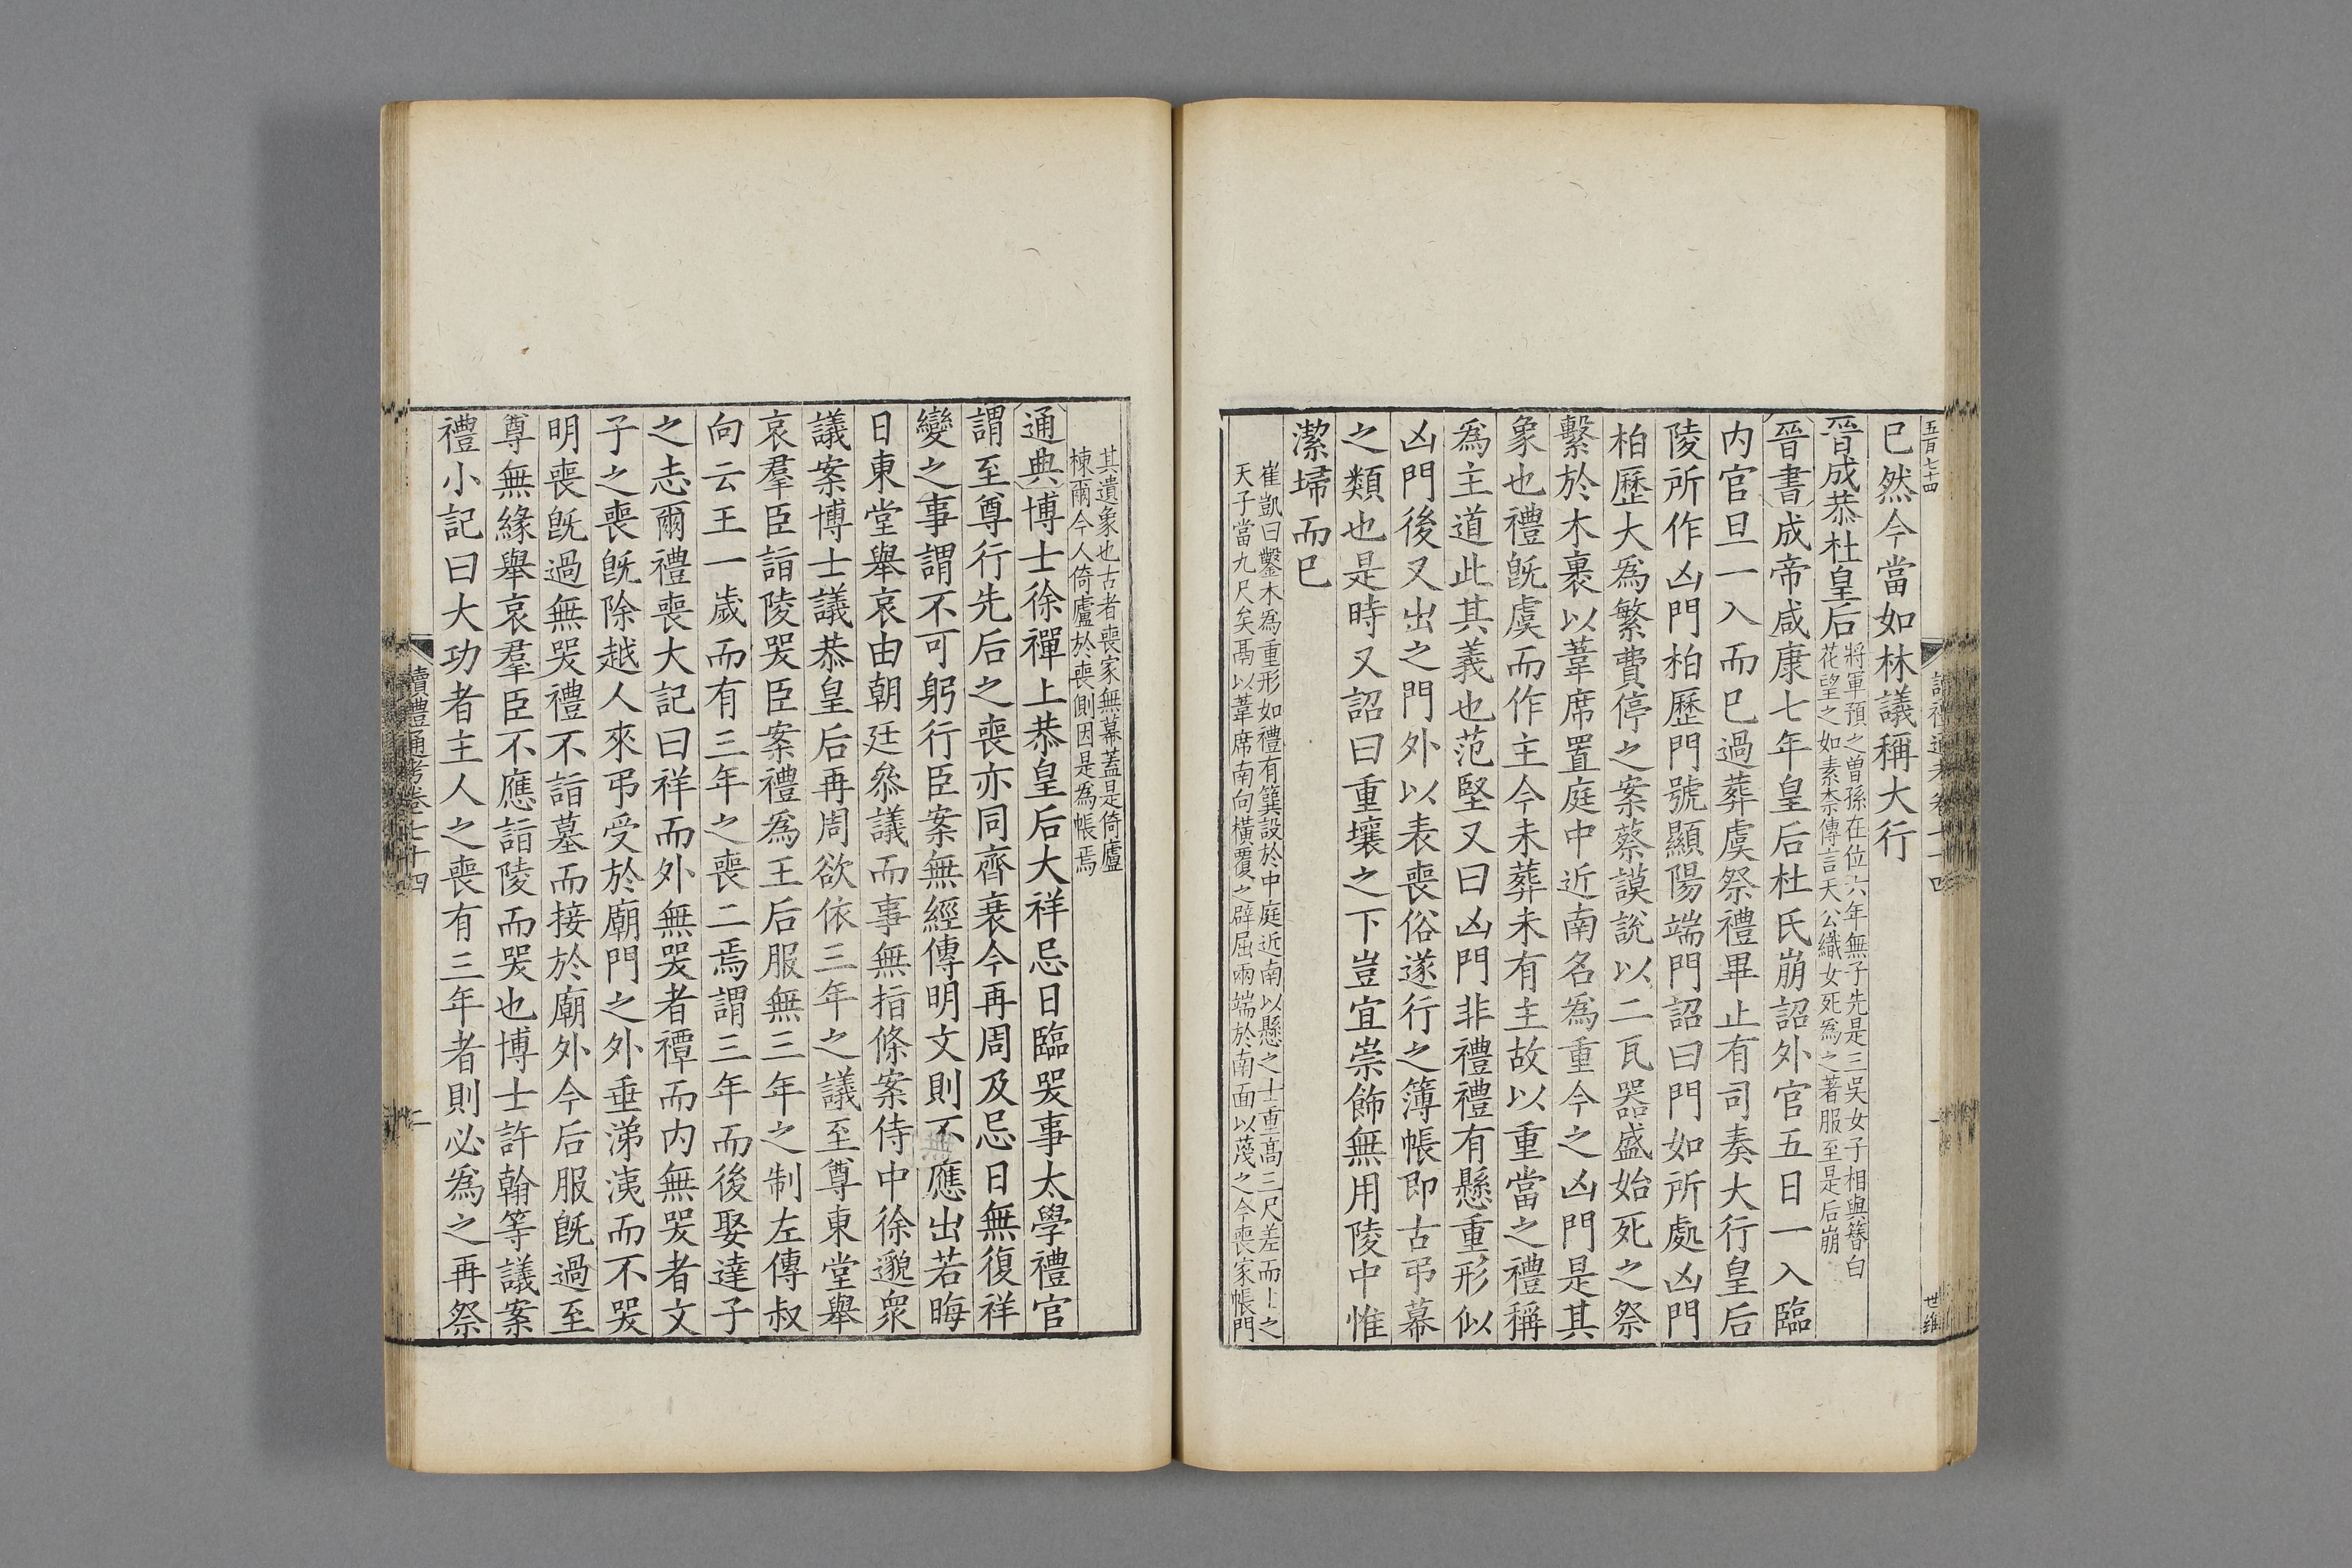 五百七十四
已然今當如林議稱大行
晉成恭杜皇后
將軍預之曾孫在位六年無子先是三吳女子相與簪白
花望之如素柰傳言天公織女死爲之著服至是后崩
晉書成帝咸康七年皇后杜氏崩詔外官五日一入臨
內官旦一入而已過葬虞祭禮畢止有司奏大行皇后
陵所作凶門柏歷門號顯陽端門詔曰門如所處凶門
柏歷大爲繁費停之案蔡謨說以二瓦器盛始死之祭
繫於木裹以葦席置庭中近南名爲重今之凶門是其
象也禮旣虞而作主今未葬未有主故以重當之禮稱
爲主道此其義也范堅又曰凶門非禮禮有懸重形似
凶門後又出之門外以表喪俗遂行之簿帳即古弔幕
之類也是時又詔曰重壤之下豈宜崇飾無用陵中惟
潔埽而已
崔凱曰鑿木爲重形如禮有簨設於中庭近南以懸之士重高三尺差而上之
天子當九尺矣鬲以葦席南向橫覆之辟屈兩端於南面以蔑之今喪家帳門
其遺象也古者喪家無幕蓋是倚廬
棟爾今人倚廬於喪側因是爲帳焉
通典博士徐禪上恭皇后大祥忌日臨哭事太學禮官
謂至尊行先后之喪亦同齊衰今再周及忌日無復祥
變之事謂不可躬行臣案無經傳明文則不應出若晦
日東堂舉哀由朝廷叅議而事無指條案侍中徐邈衆
議案博士議恭皇后再周欲依三年之議至尊東堂舉
哀羣臣詣陵哭臣案禮爲王后服無三年之制左傳叔
向云王一歲而有三年之喪二焉謂三年而後娶達子
之志爾禮喪大記曰祥而外無哭者禫而內無哭者文
子之喪旣除越人來弔受於廟門之外垂涕洟而不哭
明喪旣過無哭禮不詣墓而接於廟外今后服旣過至
尊無緣舉哀羣臣不應詣陵而哭也博士許翰等議案
禮小記曰大功者主人之喪有三年者則必爲之再祭
讀禮通考卷七十四
二